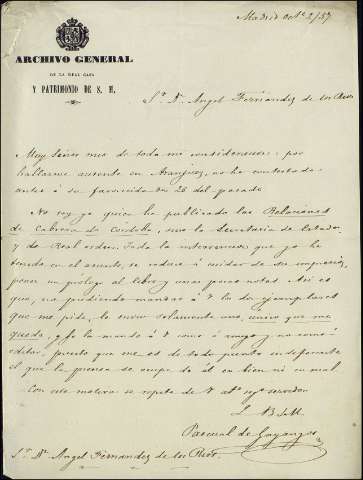 Madrid Oct.e 2/57
ARCHIVO GENERAL
DE LA REAL CASA
Y PATRIMONIO DE S. M.
Sr. Dn. Angel Fernández de los Rios
Muy Señor mio de toda mi consideracion: por
hallarme ausente en Aranjuez, no he contestado
antes á su favorecida de 26 del pasado
No soy yo quien ha publicado las Relaciones
de Cabrera de Cordoba, sino la Secretaria de Estado
y de Real orden. Toda la intervencion que yo he
tenido en el asunto, se reduce á cuidar de su impresion,
poner un prólogo al libro y unas pocas notas Asi es
que, no pudiendo mandar á V los ejemplares
que me pide, le envio solamente uno, unico que me
queda, y se lo mando á V como á amigo y no como á
editor, puesto que me es de todo punto indiferente
el que la prensa se ocupe de él en bien ni en mal
Con este motivo se repite de V at.o seg.o servidor
Q B S M
Pascual de Gayangos
Sr. Dn. Angel Fernandez de los Rios.